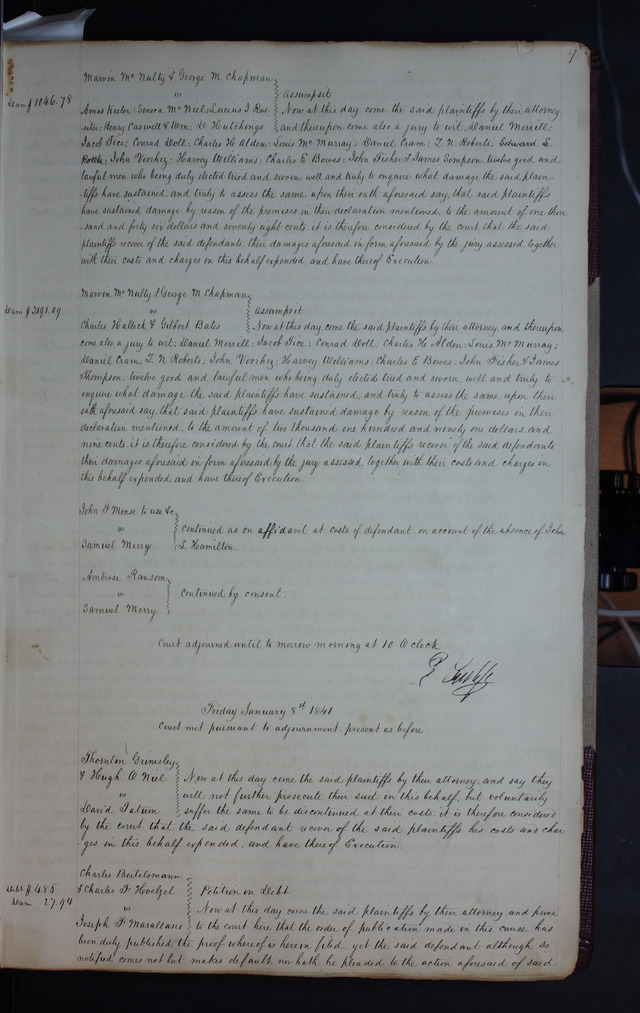 7
Marvin Mc Nulty & George M Chapman
vs
assumpsit
Dam $1046.78
Amos Keeler: Seneca Mc Neil; Lucius I Ros-
Now at this day come the said plaintiffs by their attorney
siter Henry Caswell & Wm. D. Hutchings
and thereupon come also a jury to wit, Daniel Merrill:
Jacob Tice; Conrad Doll: Charles H Alden: Louis Mc Murray; Daniel Cram; L. N. Roberts, Edward L
John Voorhez; Harvey Williams: Charles E Bowes: John Fisher & James Sompson, twelve good and
lawful men who being duly elected tried and sworn, well and truly to enquire what damage the said plain-
tiffs have sustained, and truly to assess the same, upon their oath aforesaid say, that said plaintiffs
have sustained damage by reason of the premises in their declaration mentioned, to the amount of one thou
sand and forty six dollars and seventy eight cents, it is therefore considered by the court that the said
plaintiffs recover of the said defendants, their damages aforesaid in form aforesaid by the jury assessed, together
with their costs and charges in this behalf expended, and have thereof Execution.
Marvin Mc Nulty & George M. Chapman
Dam $2191.09
vs
assumpsit
Charles Hallock & Gilbert Bates
Now at this day come the said plaintiffs by their attorney, and thereupon
come also a jury to wit; Daniel Merrill: Jacob Tice: Conrad Doll: Charles H. Alden: Louis Mc Murray;
Daniel Cram; L. N Roberts; John Voorhez; Harvey Williams: Charles E Bowes: John Fisher & James
Thompson, twelve good and lawful men who being duly elected tried and sworn, well and truly to
enquire what damage the said plaintiffs have sustained, and truly to assess the same, upon their
oath aforesaid say, that said plaintiffs have sustained damage by reason of the premises in their
declaration mentioned, to the amount of two thousand one hundred and ninety one dollars and
nine cents, it is therefore considered by the court that the said plaintiffs recover of the said defendants
their damages aforesaid in form aforesaid by the jury assessed, together with their costs and charges in
this behalf expended, and have thereof Execution.
John F Morse to use &c
vs
continued as on affidavit at costs of defendant, on account of the absence of John
Samuel Merry
L Hamilton.
Ambrose Ransom
vs
continued by consent.
Samuel Merry
Court adjourned until to morrow morning at 10 O clock
Friday January 8th 1841
Court met pursuant to adjournment, present as before
Thornton Grimsley
& Hugh O Neil
Now at this day come the said plaintiffs by their attorney, and say they
vs
will not further prosecute their suit in this behalf, but voluntarily
David Tatum
suffer the same to be discontinued at their costs, it is therefore considered
by the court that the said defendant recover of the said plaintiffs his costs and char
ges in this behalf expended, and have thereof Execution.
Charles Bertelsmann
Debt $485
& Charles F Hoelzel
Petition in Debt
Dam. 27.94
vs
Now at this day come the said plaintiffs by their attorney, and prove
Joseph F Marallano
to the court here that the order of publication made in this cause, has
been duly published, the proof whereof is hereon filed, yet the said defendant although so
notified, comes not but makes default, nor hath he pleaded to the action aforesaid of said